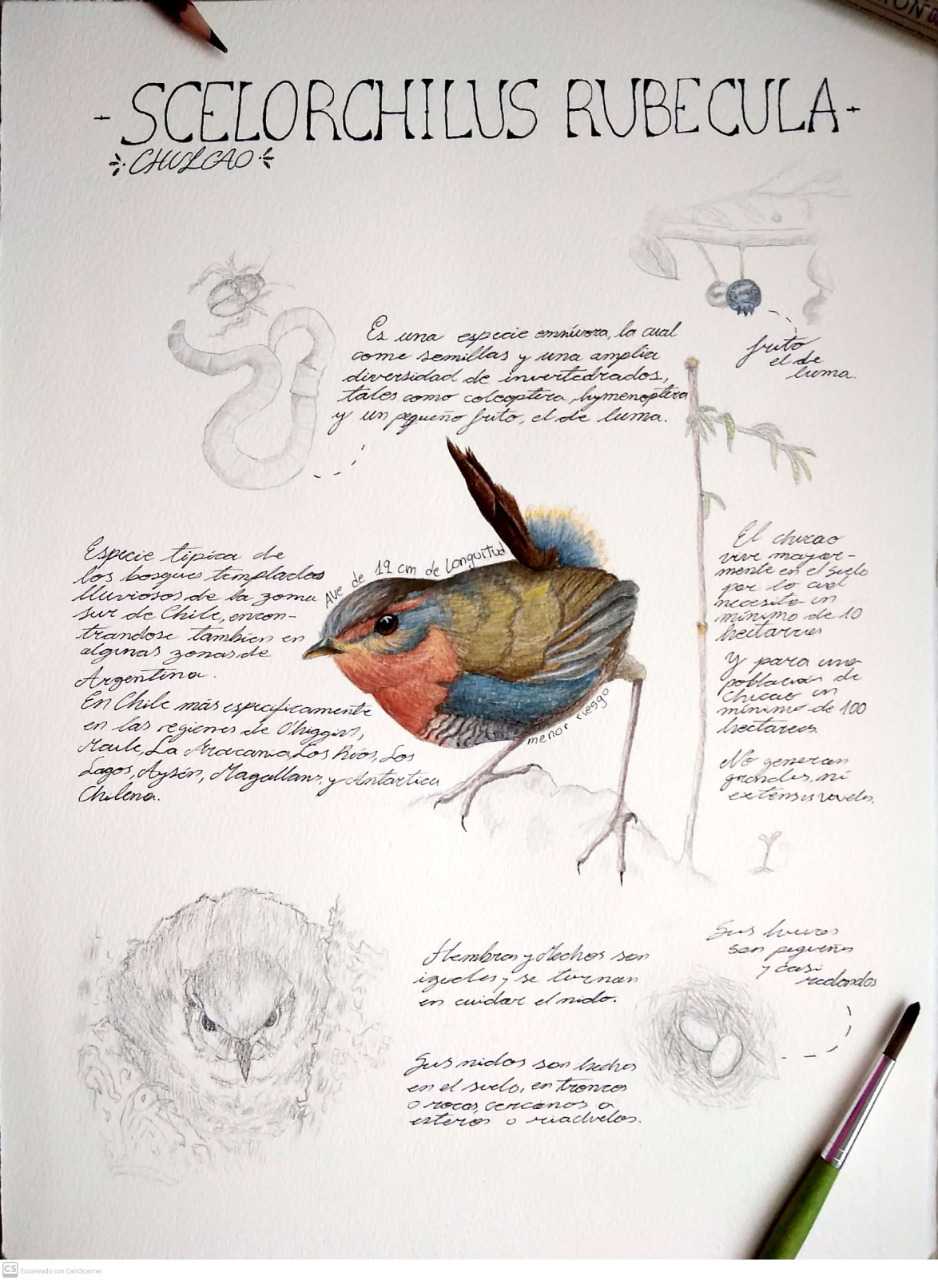 -SCELORCHILUS RUBECULA-
CHUCAO
Es una especie omnívora, la cual
come semillas y una amplia
diversidad de invertedrados,
tales como coleoptera, hymenoptera
y un pequeño fruto, el de luma.
fruto
el de
luma.
Ave de 19 cm de longuitud
Especie típica de
los bosques templados
lluviosos de la zona
sur de Chile, encon-
trandose tambien en
algunas zonas de
Argentina.
En Chile más especificamente
en las regiones de Ohiggins,
Maule, La Araucania, Los Ríos, Los
Lagos, Aysén, Magallans, y Antartica
Chilena.
menor riesgo
El chucao
vive mayor-
mente en el suelo
por lo cual
necesita un
mínimo de 10
hectarias
Y para una
poblacion de
Chucao un
mínimo de 100
hectareas.
No generan
grandes, ni
extensos vuelos.
Hembras y Machos son
iguales y se turnan
en cuidar el nido.
Sus huevos
son pequeños
y casi
redondos
Sus nidos son hechos
en el suelo, en troncos
o rocas cercanos a
esteros o riachuelos.
CS Escaneado con CamScanner